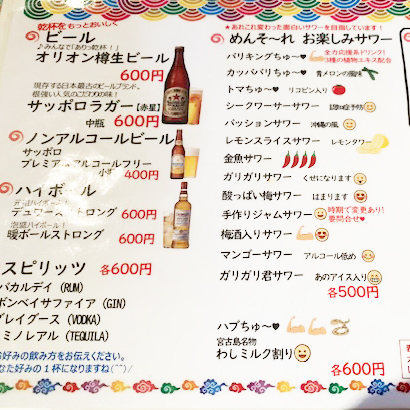 乾杯をもっとおいしく
ビール
♪みんなで「ありっ乾杯！」
オリオン樽生ビール
600円
現存する日本最古のビールブランド。
根強い人気のこだわりの味！
サッポロラガー【赤星】
中瓶 600円
ノンアルコールビール
サッポロ
プレミアムアルコールフリー
小瓶 400円
ハイボール
デュワーズストロング 600円
泡盛ハイボール！
暖ボールストロング 600円
スピリッツ 各600円
バカルディ (RUM)
ボンベイサファイア (GIN)
グレイグース (VODKA)
カミノレアル (TEQUILA)
お好みの飲み方をお伝えください。
あなた好みの1杯になりますね(^^)/
★あれこれ変わった面白いサワーを目指しています！
めんそ～れ お楽しみサワー
バリキングちゅ～♥ 全力応援系ドリンク！
3種の植物エキス配合
カッパバリちゅ～♥ 青メロンの風味
トマちゅ～♥ リコピン入り
シークワーサーサワー 認知症予防
パッションサワー 沖縄の風
レモンスライスサワー レモンタワー
金魚サワー
ガリガリサワー くせになります
酸っぱい梅サワー はまります
手作りジャムサワー 時期で変更あり！
要問合せ♥
梅酒入りサワー
マンゴーサワー アルコール低め
ガリガリ君サワー あのアイス入り
各500円
ハブちゅ～♥
宮古島名物
わしミルク割り
各600円